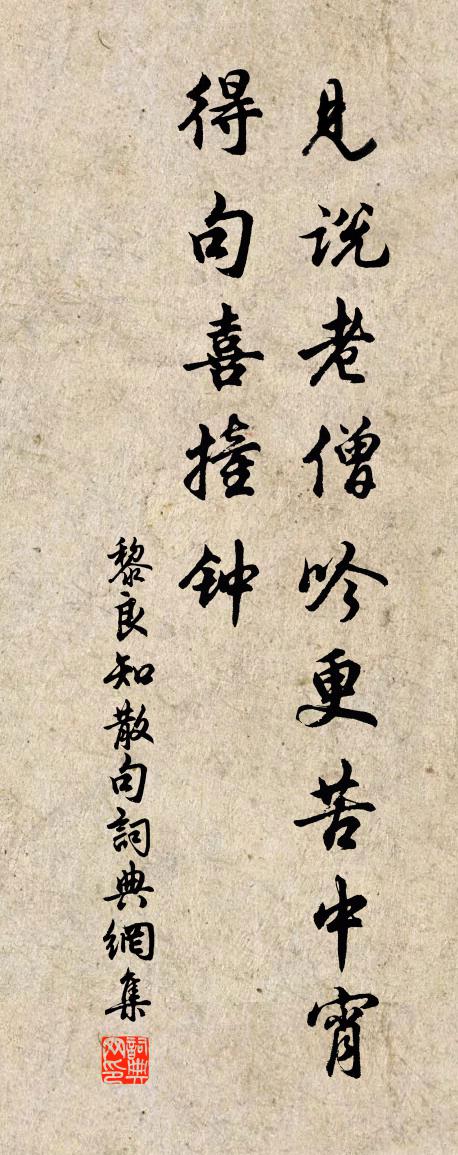 见说老僧吟更苦中宵
得句喜撞钟
黎良知散句詞典網集
詞典网印